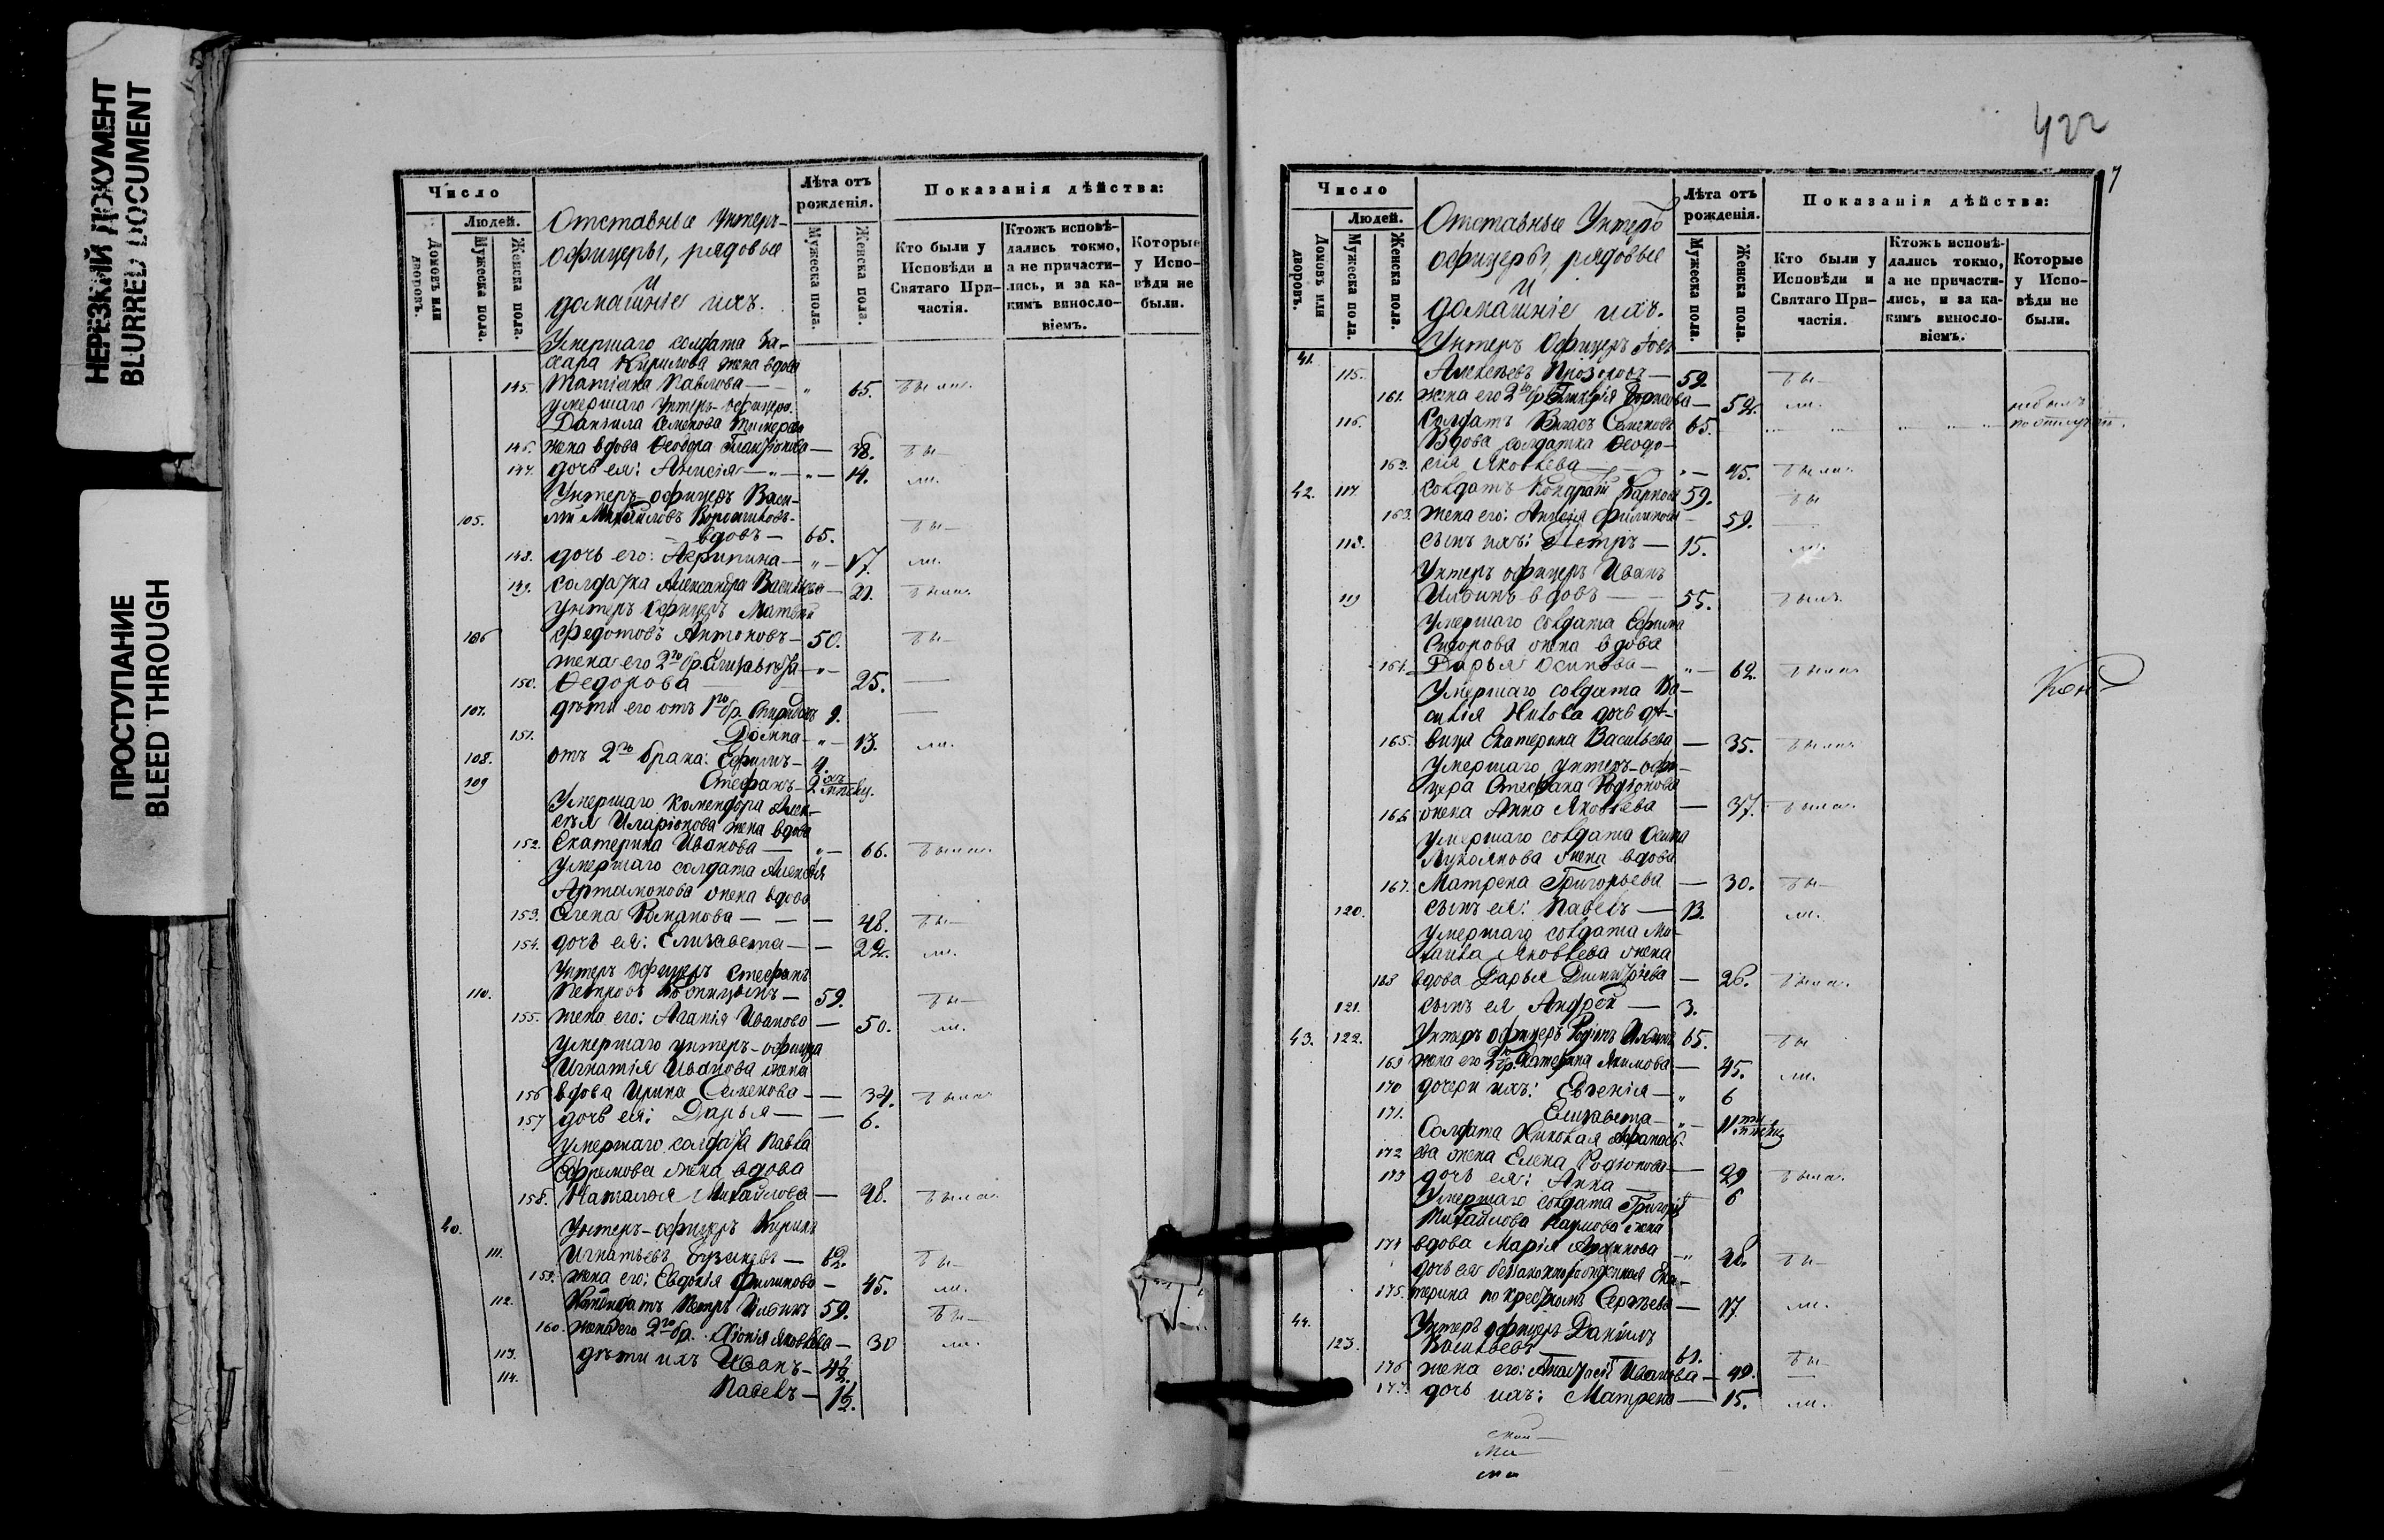 НЕРЕЗКИЙ ДОКУМЕНТ
BLURRED DOCUMENT
ПРОСТУПАНИЕ
BLEED THROUGH
Число
Людей.
Домовъ или дворовъ.
Мужеска пола.
Женска пола.
Отставные унтеръ-
офицеры, рядовые
и
домашніе ихъ.
Лѣта отъ рожденія.
Мужеска пола.
Женска пола.
Показанія дѣйства:
Кто были у Исповѣди и Святаго Причастія.
Ктожъ исповѣдались токмо, а не причастились, и за какимъ винословіемъ.
Которые у Исповѣди не были.
Умершаго солдата
Кирилова жена вдова
145. Татіана Павлова — " 65. были.
умершаго унтеръ-офицера
Даніила Семенова
146. жена вдова Ѳеодора — 38. бы-
147. дочь ея: Анисія — " — 14. ли.
Унтеръ-офицеръ Васи-
105. лій Михайловъ бы-
вдовъ — 65.
148. дочь его: Агрипина — " — 17. ли.
149. солдатка Александра Васильева — 21. была.
Унтеръ Офицеръ Матвѣй
106 Федотовъ Антоновъ — 50. бы-
жена его 2го бр. Елизавета — " —
150. Ѳедорова — 25. —
107. дѣти его отъ 1го бр. Спиридонъ 9. —
151. Домна — " — 13. ли.
108. отъ 2го брака: Ефимъ — 4.
109 Стефанъ — 2хъ мѣсяц.
Умершаго Комендора Алек-
сѣя Иларіонова жена вдова
152. Екатерина Иванова — " — 66. была.
умершаго солдата Алексѣя
Артамонова жена вдова
153. Елена Романова — — — 48. бы-
154. дочь ея: Елизавета — — 22. ли.
Унтеръ Офицеръ Стефанъ
110. Петровъ — 59. бы-
155. жена его: Агапія Иванова — 50. ли.
умершаго унтеръ-офицера
Игнатія Иванова жена
156 вдова Ирина Семенова — — 34. была
157 дочь ея: Дарья — — 6.
умершаго солдата Павла
Ефремова жена вдова
158. Наталья Михайлова — 48. была.
40. Унтеръ-офицеръ Кирилъ
111. Игнатьевъ — 62. бы-
159. жена его: Евдокія Филипова — 45. ли.
112. Петръ Ильинъ 59. бы-
160. жена его 2го бр. Яковлева — 30 ли.
113. дѣти ихъ Иванъ —
114. Павелъ — 1½.
422
7
Число
Людей.
Домовъ или дворовъ.
Мужеска пола.
Женска пола.
Отставные Унтеръ
офицеры, рядовые
и
домашніе ихъ.
Лѣта отъ рожденія.
Мужеска пола.
Женска пола.
Показанія дѣйства:
Кто были у Исповѣди и Святаго Причастія.
Ктожъ исповѣдались токмо, а не причастились, и за какимъ винословіемъ.
Которые у Исповѣди не были.
41. Унтеръ Офицеръ
115. Алексѣевъ — 59. бы-
161. жена его 2го бр. — 52. ли.
116. Солдатъ Власъ 65. небылъ
Вдова солдатка Ѳеодо-
162. сія Яковлева — " — 45. была.
42. 117. солдатъ Кондратій 59. бы
163. жена его: Анисія Филипова — 59. —
118. сынъ ихъ: Петръ — 15. ли.
Унтеръ офицеръ Иванъ
119 Ильинъ вдовъ — 55. былъ.
Умершаго солдата Ефима
Сидорова жена вдова
164. Дарья Осипова — " — 62. была
Умершаго солдата Ва-
силія Никова дочь дѣ-
165. вица Екатерина Васильева — 35. была.
умершаго унтеръ-офи-
цера Стефана Родіонова
166 жена Анна Яковлева — 37. была.
умершаго солдата Осипа
жена вдова
167. Матрена Григорьева — 30. бы-
120. сынъ ея: Павелъ — 13. ли.
умершаго солдата Ми-
хаила Яковлева жена
168 вдова Дарья Димитріева — 26. была.
121. сынъ ея Андрей — 3.
43. 122. Унтеръ офицеръ 65. бы
169 жена его 2го бр. Акимова — 45. ли.
170 дочери ихъ: Евгенія — " 6
171. Елизавета — " — 11ти мѣсяц
Солдата Николая Афанась-
172 ева жена Елена Родіонова — 29 была.
173 дочь ея: Анна — 6
Умершаго солдата Григорія
Михайлова жена
174 вдова Марія — " бы-
дочь ея незаконнорожденная Ека-
175. терина по крестномъ Сергѣева — 17 ли.
44. Унтеръ офицеръ Даніилъ
123. Васильевъ — 61. бы-
176 жена его: Анастасія Иванова — 49. —
177. дочь ихъ: Матрена — 15. ли.